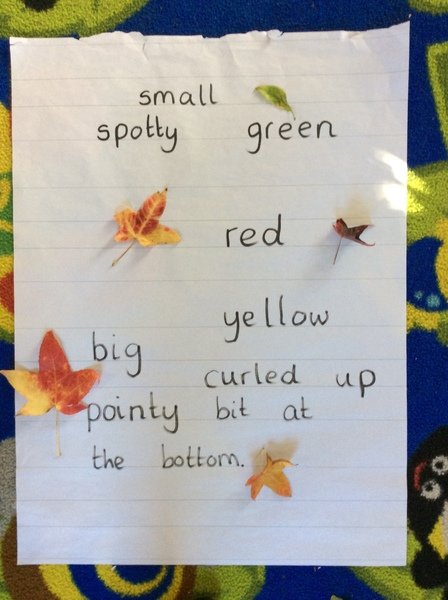 small
spotty green
red
yellow
big
curled up
pointy bit at
the bottom.